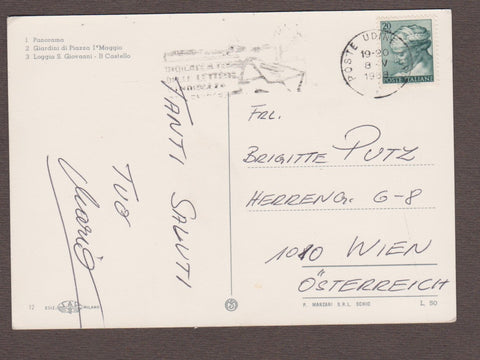 1 Panorama
2 Giardini di Piazza 1° Maggio
3 Loggia S. Giovanni - Il Castello
TANTI SALUTI
TUO
Mario
12 EDIZ. S.A.F. MILANO
POSTE UDINE
19-20
8-V
20
POSTE ITALIANE
FRL.
BRIGITTE PUTZ
HERRENG. 6-8
1010 WIEN
ÖSTERREICH
P. MARZARI S.R.L. SCHIO
L. 50